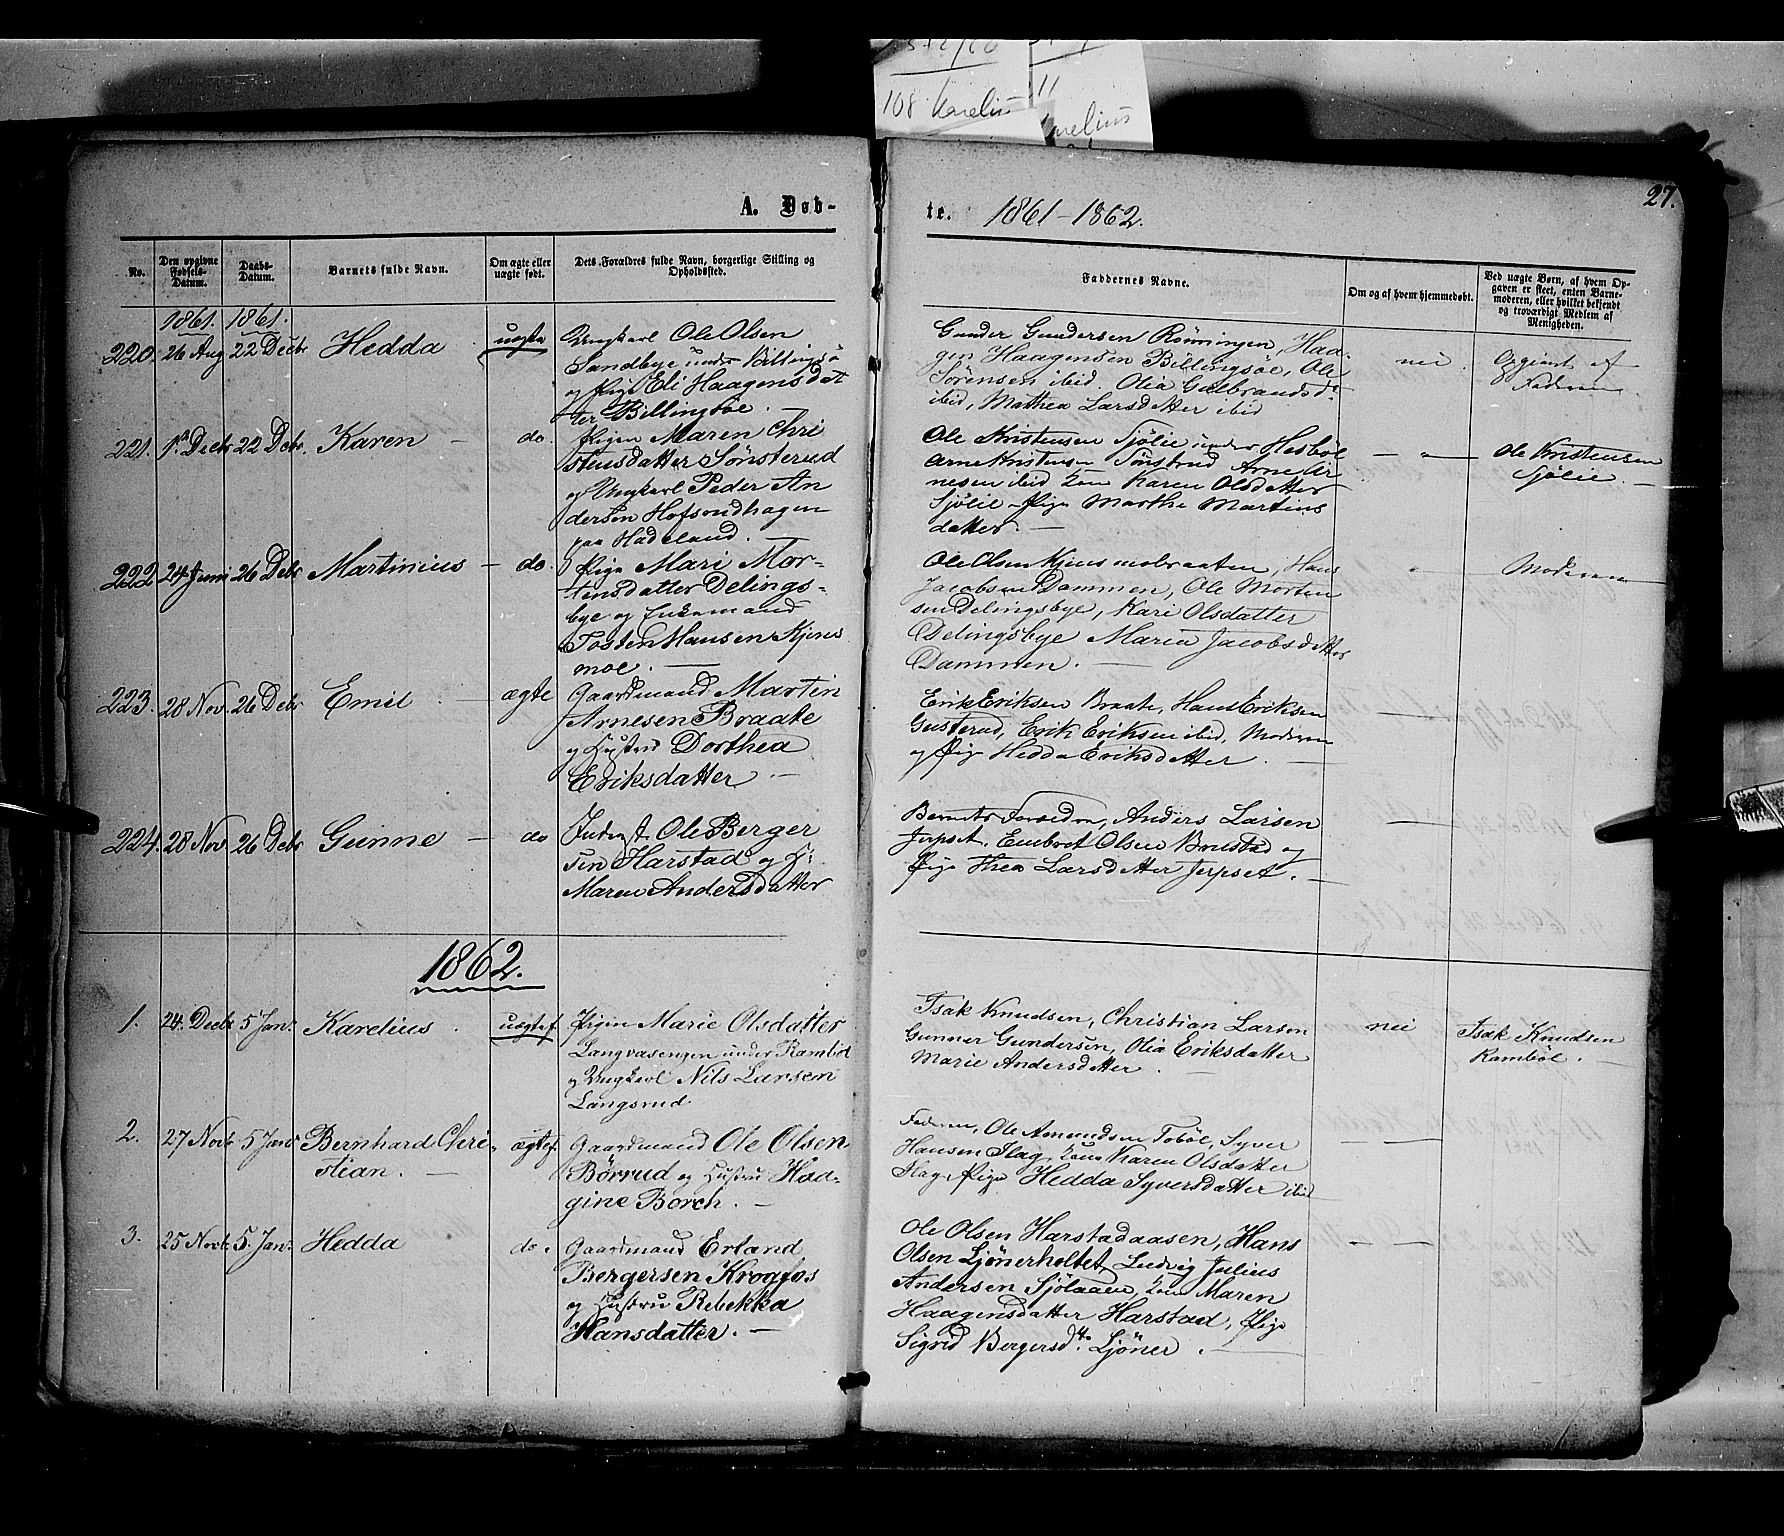 108 Karelius
11
A. Døb-
te. 1861-1862.
27.
No.
Den opgivne Fødsels-Datum.
Daabs-Datum.
Barnets fulde Navn.
Om ægte eller uægte født.
Dets Forældres fulde Navn, borgerlige Stilling og Opholdssted.
Faddernes Navne.
Om og af hvem hjemmedøbt.
Ved uægte Børn, af hvem Opgaven er skeet, enten Barnemoderen, eller hvilket bekjendt og troværdigt Medlem af Menigheden.
1861. 1861.
220. 26 Aug 22 Decbr Hedda uægte
Ungkarl Ole Olsen
Sandbye under Billingsø
og Pige Eli Haagensdat
ter Billingsøe.
Gunder Gundersen Rønningen, Haa-
gen Haagensen Billingsøe, Ole
Sørensen ibid. Olia Gulbrandsd.
ibid, Mathea Larsdatter ibid
nei
Opgivet af
Faderen
221. 1ste Decbr 22 Debr. Karen - do.
Pigen Maren Chri
stensdatter Sønsterud
og Ungkarl Peder An
dersen Hofsondhagen
paa Hadeland.
Ole Kristensen Sjølie under Hesbøl
Arne Kristensen Sønstrud Arne Ar
nesen ibid Kone Karen Olsdatter
Sjølie - Pige Marthe Martins
datter.
— " —
Ole Kristensen
Sjølie.
222 24 Juni 26 Debr Martinius - do.
Pige Mari Mor-
tensdatter Delings-
bye og Enkemand
Tosten Hansen Kjens
moe.
Ole Olsen Kjensmobraaten, Hans
Jacobsen Dammen, Ole Morten
sen Delingsbye, Kari Olsdatter
Delingsbye Maria Jacobsdatter
Dammen.
"
Moderen
223. 28 Nov. 26 Debr Emil ægte
Gaardmand Martin
Arnesen Braate
og Hustru Dorthea
Eriksdatter.
Erik Eriksen Braate, Hans Eriksen
Gusterud, Erik Eriksen ibid, Moderen
og Pige Hedda Eriksdatter.
224. 28 Nov 26 Debr Gunne - do
Inderst Ole Berger
sen Harstad og H:
Maren Andersdatter
Barnets Forældre, Anders Larsen
Jerpset. Embret Olsen Brustad og
Pige Thea Larsdatter Jerpset.
1862.
1. 24. Decbr 5 Jan: Karelius uægtef.
Pigen Marie Olsdatter
Langvasengen under Rambøl
og Ungkarl Nils Larsen
Langsrud.
Isak Knudsen, Christian Larsen
Gunner Gundersen, Olia Eriksdatter
Marie Andersdatter.
nei
Isak Knudsen
Rambøl.
2. 27 Novbr 5 Janr Bernhard Chri-
stian.
ægtef.
Gaardmand Ole Olsen
Børrud og Hustru Haa-
gine Borch.
Faderen, Ole Amundsen Tobøl, Syver
Hansen Flag, Kone Karen Olsdatter
Flag, Pige Hedda Syversdatter ibid
3. 25 Novbr. 5. Jan: Hedda do.
Gaardmand Erland
Bergersen Krogfos
og Hustru Rebekka
Hansdatter.
Ole Olsen Harstadaasen, Hans
Olsen Ljønerholtet, Ludvig Julius
Andersen Sjølaaen, Kone Maren
Haagensdatter Harstad, Pige
Sigrid Bergersdtr. Ljøner.